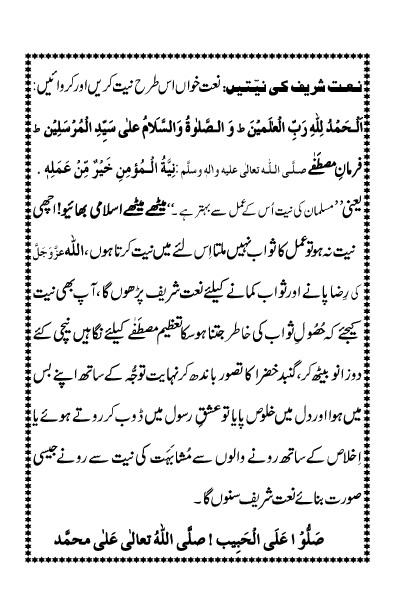 نعت شریف کی نیّتیں: نعت خواں اس طرح نیت کریں اور کروائیں:
اَلْحَمْدُ لِلّٰهِ رَبِّ الْعٰلَمِيْنَ ط وَ الصَّلٰوةُ وَالسَّلَامُ عَلٰى سَيِّدِ الْمُرْسَلِيْن ط
فرمانِ مصطَفٰے صلَّی اللہ تعالٰی علیہ واٰلہٖ وسلَّم: نِيَّةُ الْمُؤْمِنِ خَيْرٌ مِّنْ عَمَلِهٖ .
یعنی ’’مسلمان کی نیت اُس کے عمل سے بہتر ہے۔‘‘ میٹھے میٹھے اسلامی بھائیو! اچھی
نیت نہ ہو تو عمل کا ثواب نہیں ملتا اِس لئے میں نیت کرتا ہوں، اللّٰہ عَزَّوَجَلَّ
کی رِضا پانے اور ثواب کمانے کیلئے نعت شریف پڑھوں گا، آپ بھی نیت
کیجئے کہ حُصُولِ ثواب کی خاطر جتنا ہوسکا تعظیمِ مصطَفٰے کیلئے نگاہیں نیچی کئے
دوزانو بیٹھ کر، گنبدِ خضرا کا تصور باندھ کر نہایت توجُّہ کے ساتھ اپنے بس
میں ہوا اور دل میں خلوص پایا تو عشقِ رسول میں ڈوب کر روتے ہوئے یا
اِخلاص کے ساتھ رونے والوں سے مُشابَہَت کی نیت سے رونے جیسی
صورت بنائے نعت شریف سنوں گا۔
صَلُّوْا عَلَى الْحَبِيب ! صلَّى اللهُ تعالٰى عَلٰى محمَّد